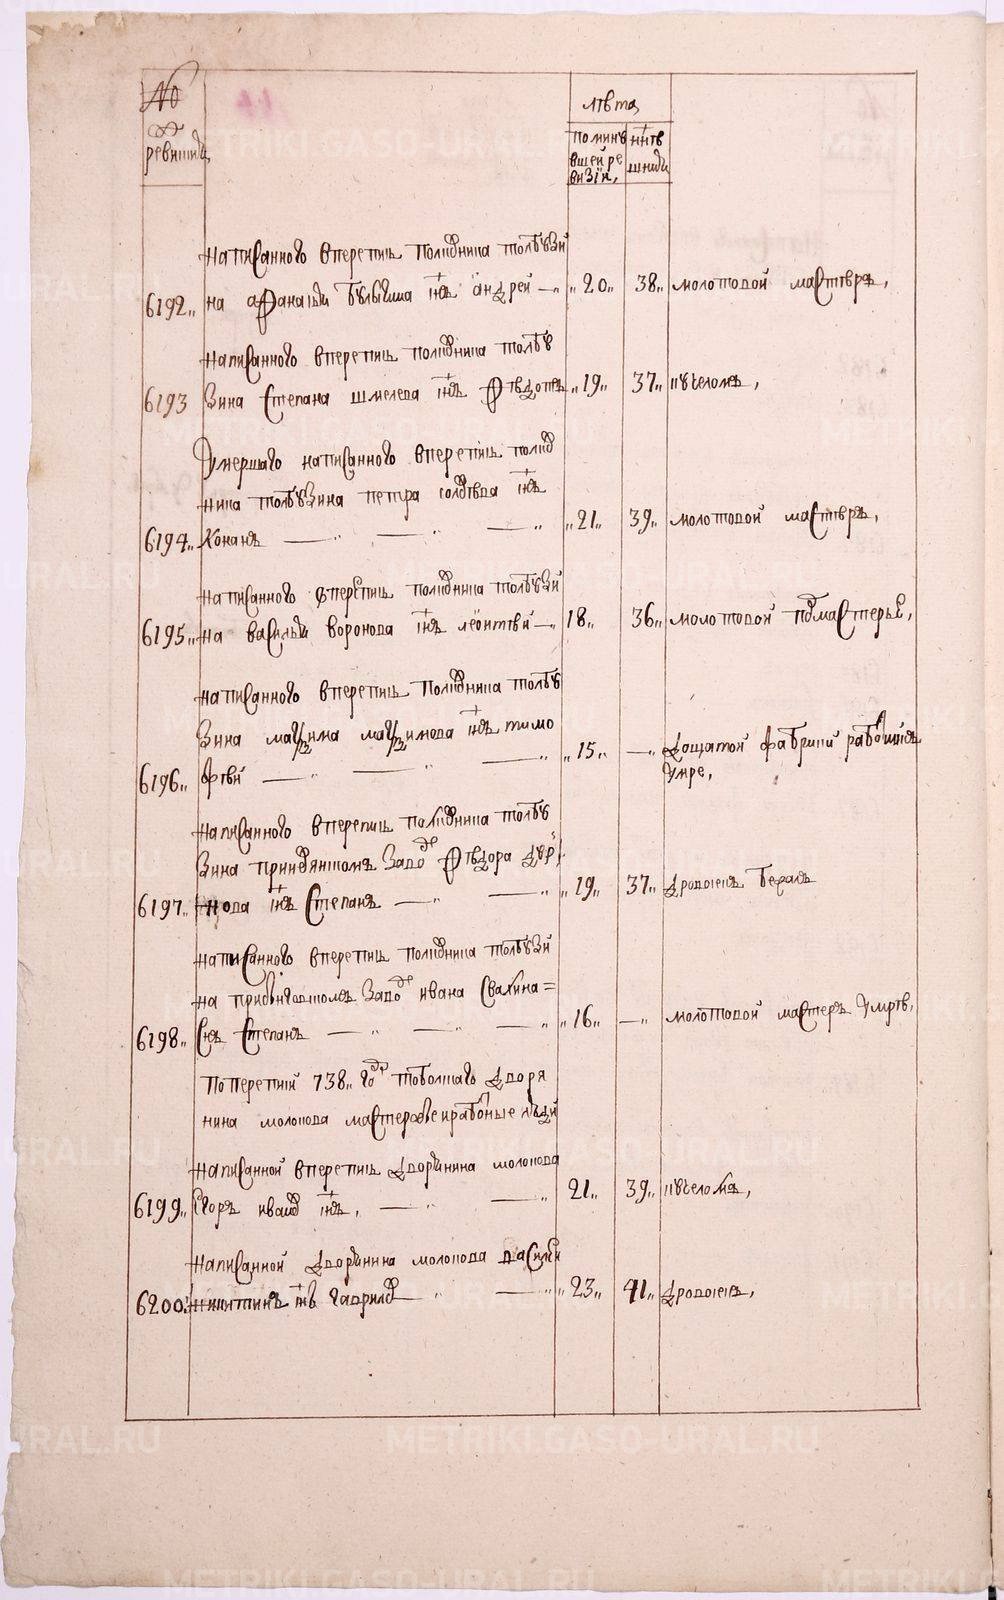 №
ревишнхъ
лѣта
поминѣ
вшей ре
визіи,
нынѣ
шнихъ
написанного вперепись половника толбузи
6192„ на афанасья сынъ андрей — „ „20„ 38„ молотовой мастеръ,
написанного вперепись половника толбу
6193 зина степана шмелева сынъ „19„ 37„
умершаго написанного вперепись полов
ника толбузина петра сынъ
6194„ кононъ — „ — — „ „21„ 39„ молотовой мастеръ,
написанного вперепись половника толбузи
6195„ на василья воронова сынъ леонтей — „ 18„ 36„ молотовой подмастерье,
написанного вперепись половника толбу
зина максима максимова сынъ тимо
6196„ фей — „ — „ — „ „15„ — „ дощатой фабрики работникъ
умре,
написанного вперепись половника толбу
зина заводѣ федора
6197„ нова сынъ степанъ — „ — „ „19„ 37„ дровосекъ бежалъ
написанного вперепись половника толбузи
на заводѣ ивана свахина=
6198„ сынъ степанъ — „ — „ — „ „16„ — „ молотовой мастеръ умре,
по переписи 738„ году тоболскаго дворя
нина молокова мастеровые и работные люди
написанной вперепись дворянина молокова
6199„ егоръ ивановъ сынъ, — „ — „ 21„ 39„
написанной дворянина молокова василей
6200„ никитинъ сынъ гаврилов — „ — „ „23„ 41„ дровосекъ,
METRIKI.GASO-URAL.RU